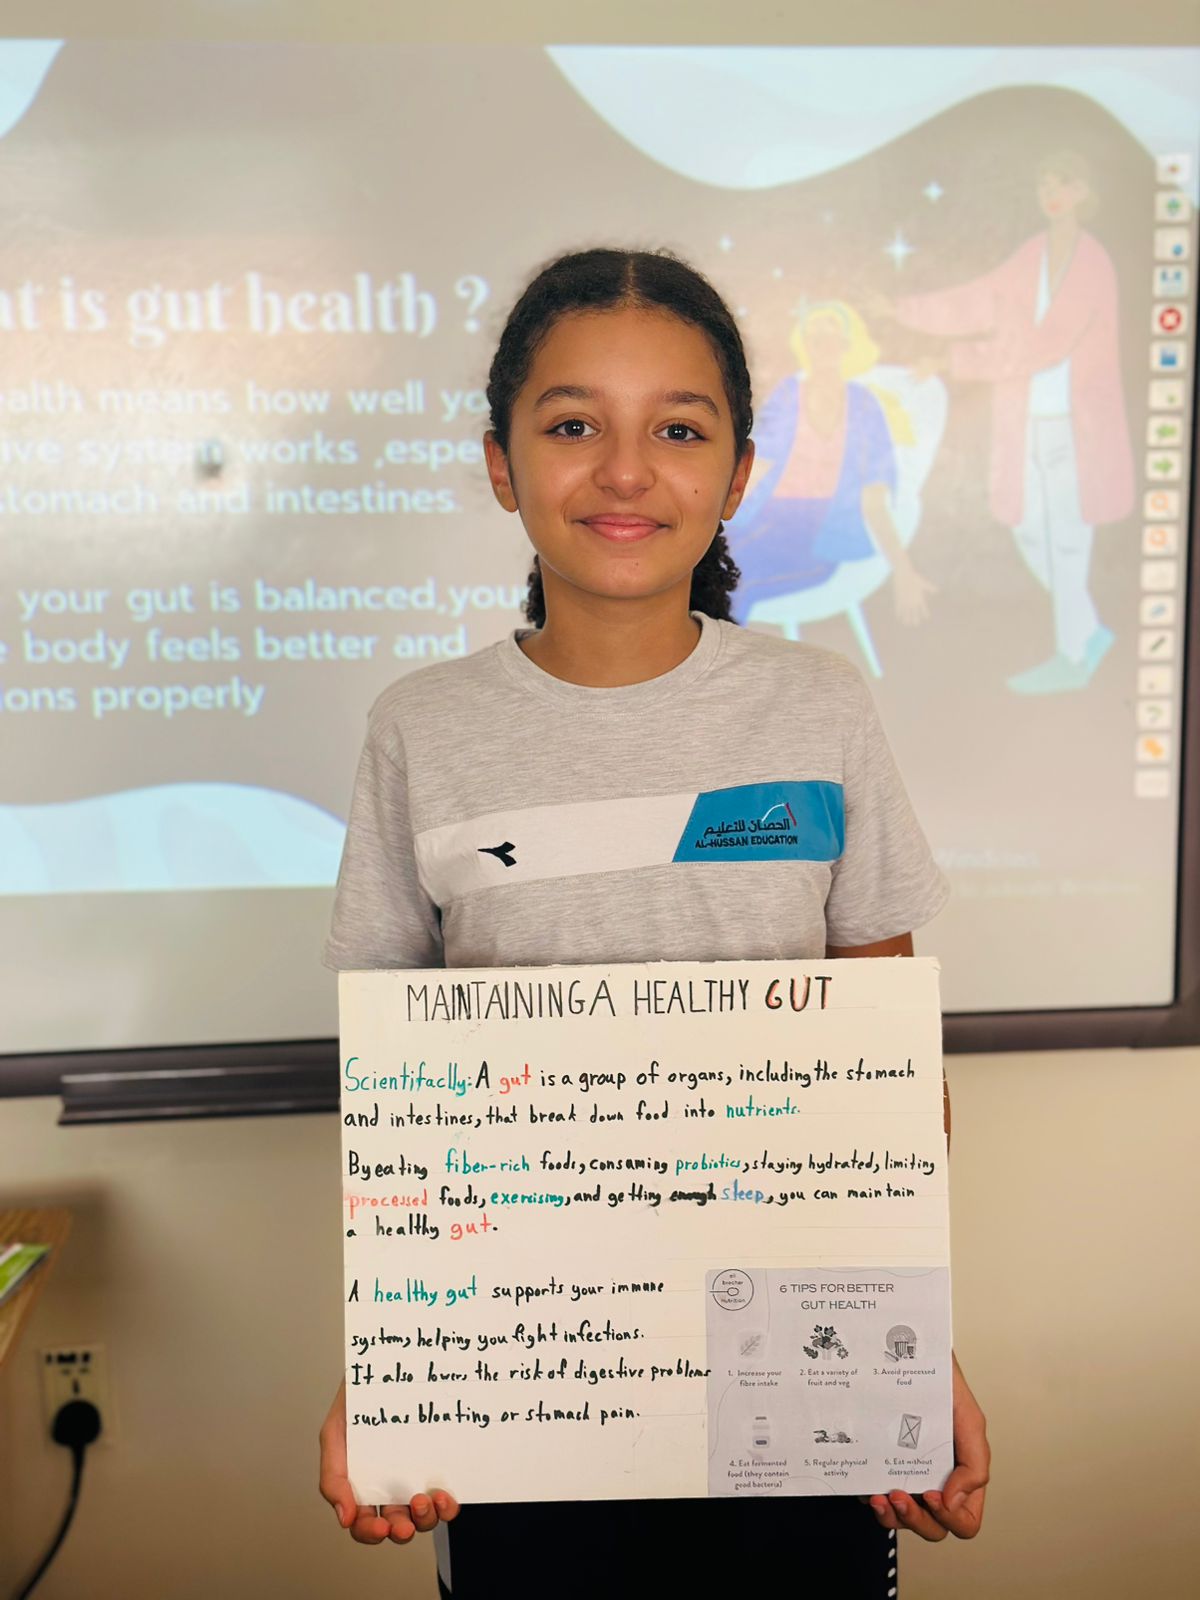 at is gut health ?
ealth means how well yo
ive system works ,espe
stomach and intestines.
your gut is balanced,you
e body feels better and
ions properly
الحصان للتعليم
AL-HUSSAN EDUCATION
MAINTAINING A HEALTHY GUT
Scientifaclly: A gut is a group of organs, including the stomach
and intestines, that break down food into nutrients.
By eating fiber-rich foods, consuming probiotics, staying hydrated, limiting
processed foods, exercising, and getting enough sleep, you can maintain
a healthy gut.
A healthy gut supports your immune
system, helping you fight infections.
It also lowers the risk of digestive problems
such as bloating or stomach pain.
nutrition
6 TIPS FOR BETTER
GUT HEALTH
1. Increase your
fibre intake
2. Eat a variety of
fruit and veg
3. Avoid processed
food
4. Eat fermented
food (they contain
good bacteria)
5. Regular physical
activity
6. Eat without
distractions!